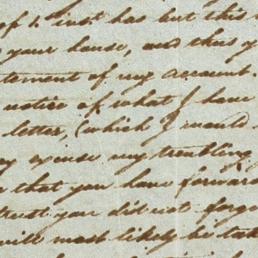 of 1. inst. has but this
your house, and thus y
tement of my account.
notice of what I have
letter, (which I would
excuse my troubling
that you have forward
trust you did not forge
will most likely be tak